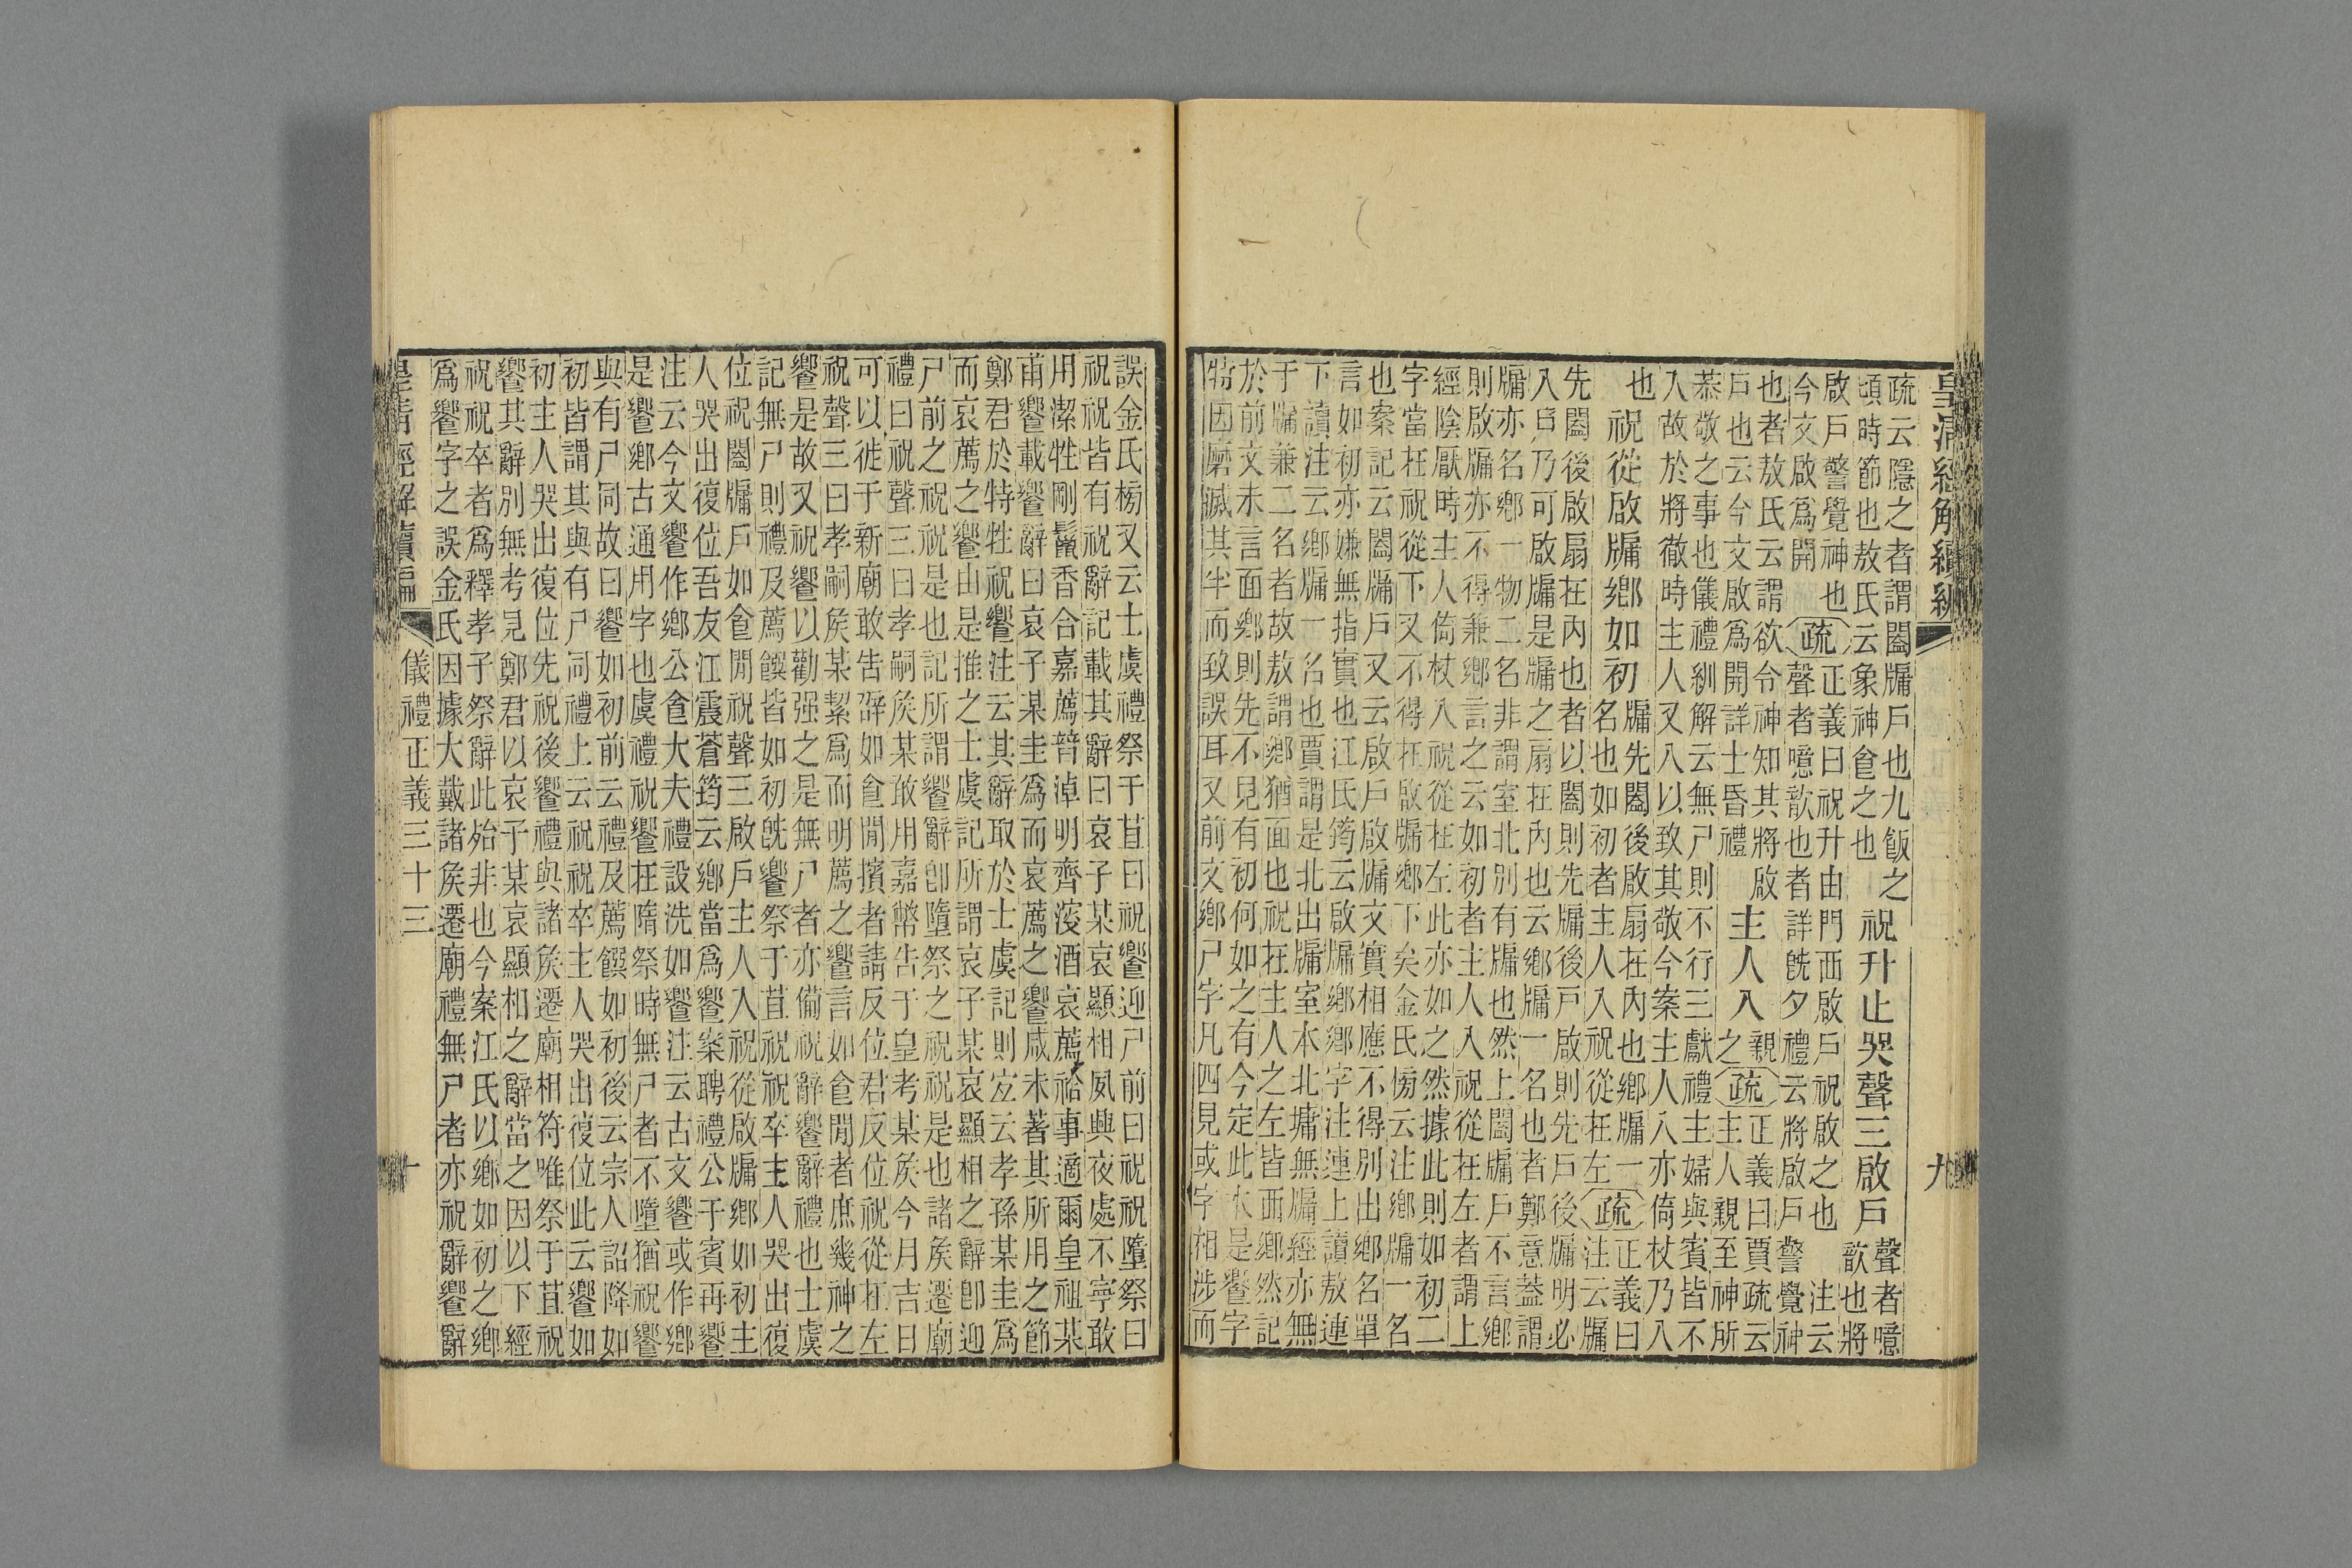 皇清經解續編　九
疏云隱之者謂闔牖戶也九飯之
頃時節也敖氏云象神食之也
祝升止哭聲三啟戶
聲者噫
歆也將
啟戶警覺神也
今文啟爲開
疏
正義曰祝升由門西啟戶祝啟之也　注云
聲者噫歆也者詳旣夕禮云將啟戶警覺神
也者敖氏云謂欲令神知其將啟
戶也云今文啟爲開詳士昏禮
主人入
親
之
疏
正義曰賈疏云
主人親至神所
恭敬之事也儀禮釧解云無尸則不行三獻禮主婦與賓皆不
入故於將徹時主人又入以致其敬今案主人入亦倚杖乃入
也
祝從啟牖鄉如初
牖先闔後啟扇在內也鄉牖一
名也如初者主人入祝從在左
疏
正義曰
注云牖
先闔後啟扇在內也者以闔則先牖後戶啟則先戶後牖明必
入戶乃可啟牖是牖之扇在內也云鄉牖一名也者鄭意蓋謂
牖亦名鄉一物二名非謂室北別有牖也然上闔牖戶不言鄉
則啟牖亦不得兼鄉言之云如初者主人入祝從在左者謂上
經陰厭時主人倚杖入祝從在左此亦如之然據此則如初二
字當在祝從下又不得在啟牖鄉下矣金氏榜云注鄉牖一名
也案記云闔牖戶又云啟戶啟牖文實相應不得別出鄉名單
言如初亦嫌無指實也江氏筠云啟牖鄉鄉字注連上讀敖連
下讀注云鄉牖一名也賈謂是北出牖室本北墉無牖經亦無
于牖兼二名者故敖謂鄉猶面也祝在主人之左皆西鄉然記
於前文未言面鄉則先不見有初何如之有今定此本是饗字
特因磨滅其半而致誤耳又前文鄉尸字凡四見或字相涉而
誤金氏榜又云士虞禮祭于苴曰祝饗迎尸前曰祝祝墮祭曰
祝祝皆有祝辭記載其辭曰哀子某哀顯相夙興夜處不寧敢
用潔牲剛鬣香合嘉薦普淖明齊溲酒哀薦祫事適爾皇祖某
甫饗載饗辭曰哀子某圭爲而哀薦之饗咸未著其所用之節
鄭君於特牲祝饗注云其辭取於士虞記則宜云孝孫某圭爲
而哀薦之饗由是推之士虞記所謂哀子某哀顯相之辭卽迎
尸前之祝祝是也記所謂饗辭卽墮祭之祝祝是也諸矦遷廟
禮曰祝聲三曰孝嗣矦某敢用嘉幣告于皇考某矦今月吉日
可以徙于新廟敢告辭如食閒擯者請反位君反位祝從在左
祝聲三曰孝嗣矦某絜爲而明薦之饗言如食閒者庶幾神之
饗是故又祝饗以勸强之是無尸者亦備祝辭饗辭禮也士虞
記無尸則禮及薦饌皆如初旣饗祭于苴祝祝卒主人哭出復
位祝闔牖戶如食閒祝聲三啟戶主人入祝從啟牖鄉如初主
人哭出復位吾友江震蒼筠云鄉當爲饗案聘禮公于賓再饗
注云今文饗作鄉公食大夫禮設洗如饗注云古文饗或作鄉
是饗鄉古通用字也虞禮祝饗在隋祭時無尸者不墮猶祝饗
與有尸同故曰饗如初前云禮及薦饌如初後云宗人詔降如
初皆謂其與有尸同禮上云祝祝卒主人哭出復位此云饗如
初主人哭出復位先祝後饗禮與諸矦遷廟相符唯祭于苴祝
饗其辭別無考見鄭君以哀子某哀顯相之辭當之因以下經
祝祝卒者爲釋孝子祭辭此殆非也今案江氏以鄉如初之鄉
爲饗字之誤金氏因據大戴諸矦遷廟禮無尸者亦祝辭饗辭
皇清經解續編　儀禮正義三十三